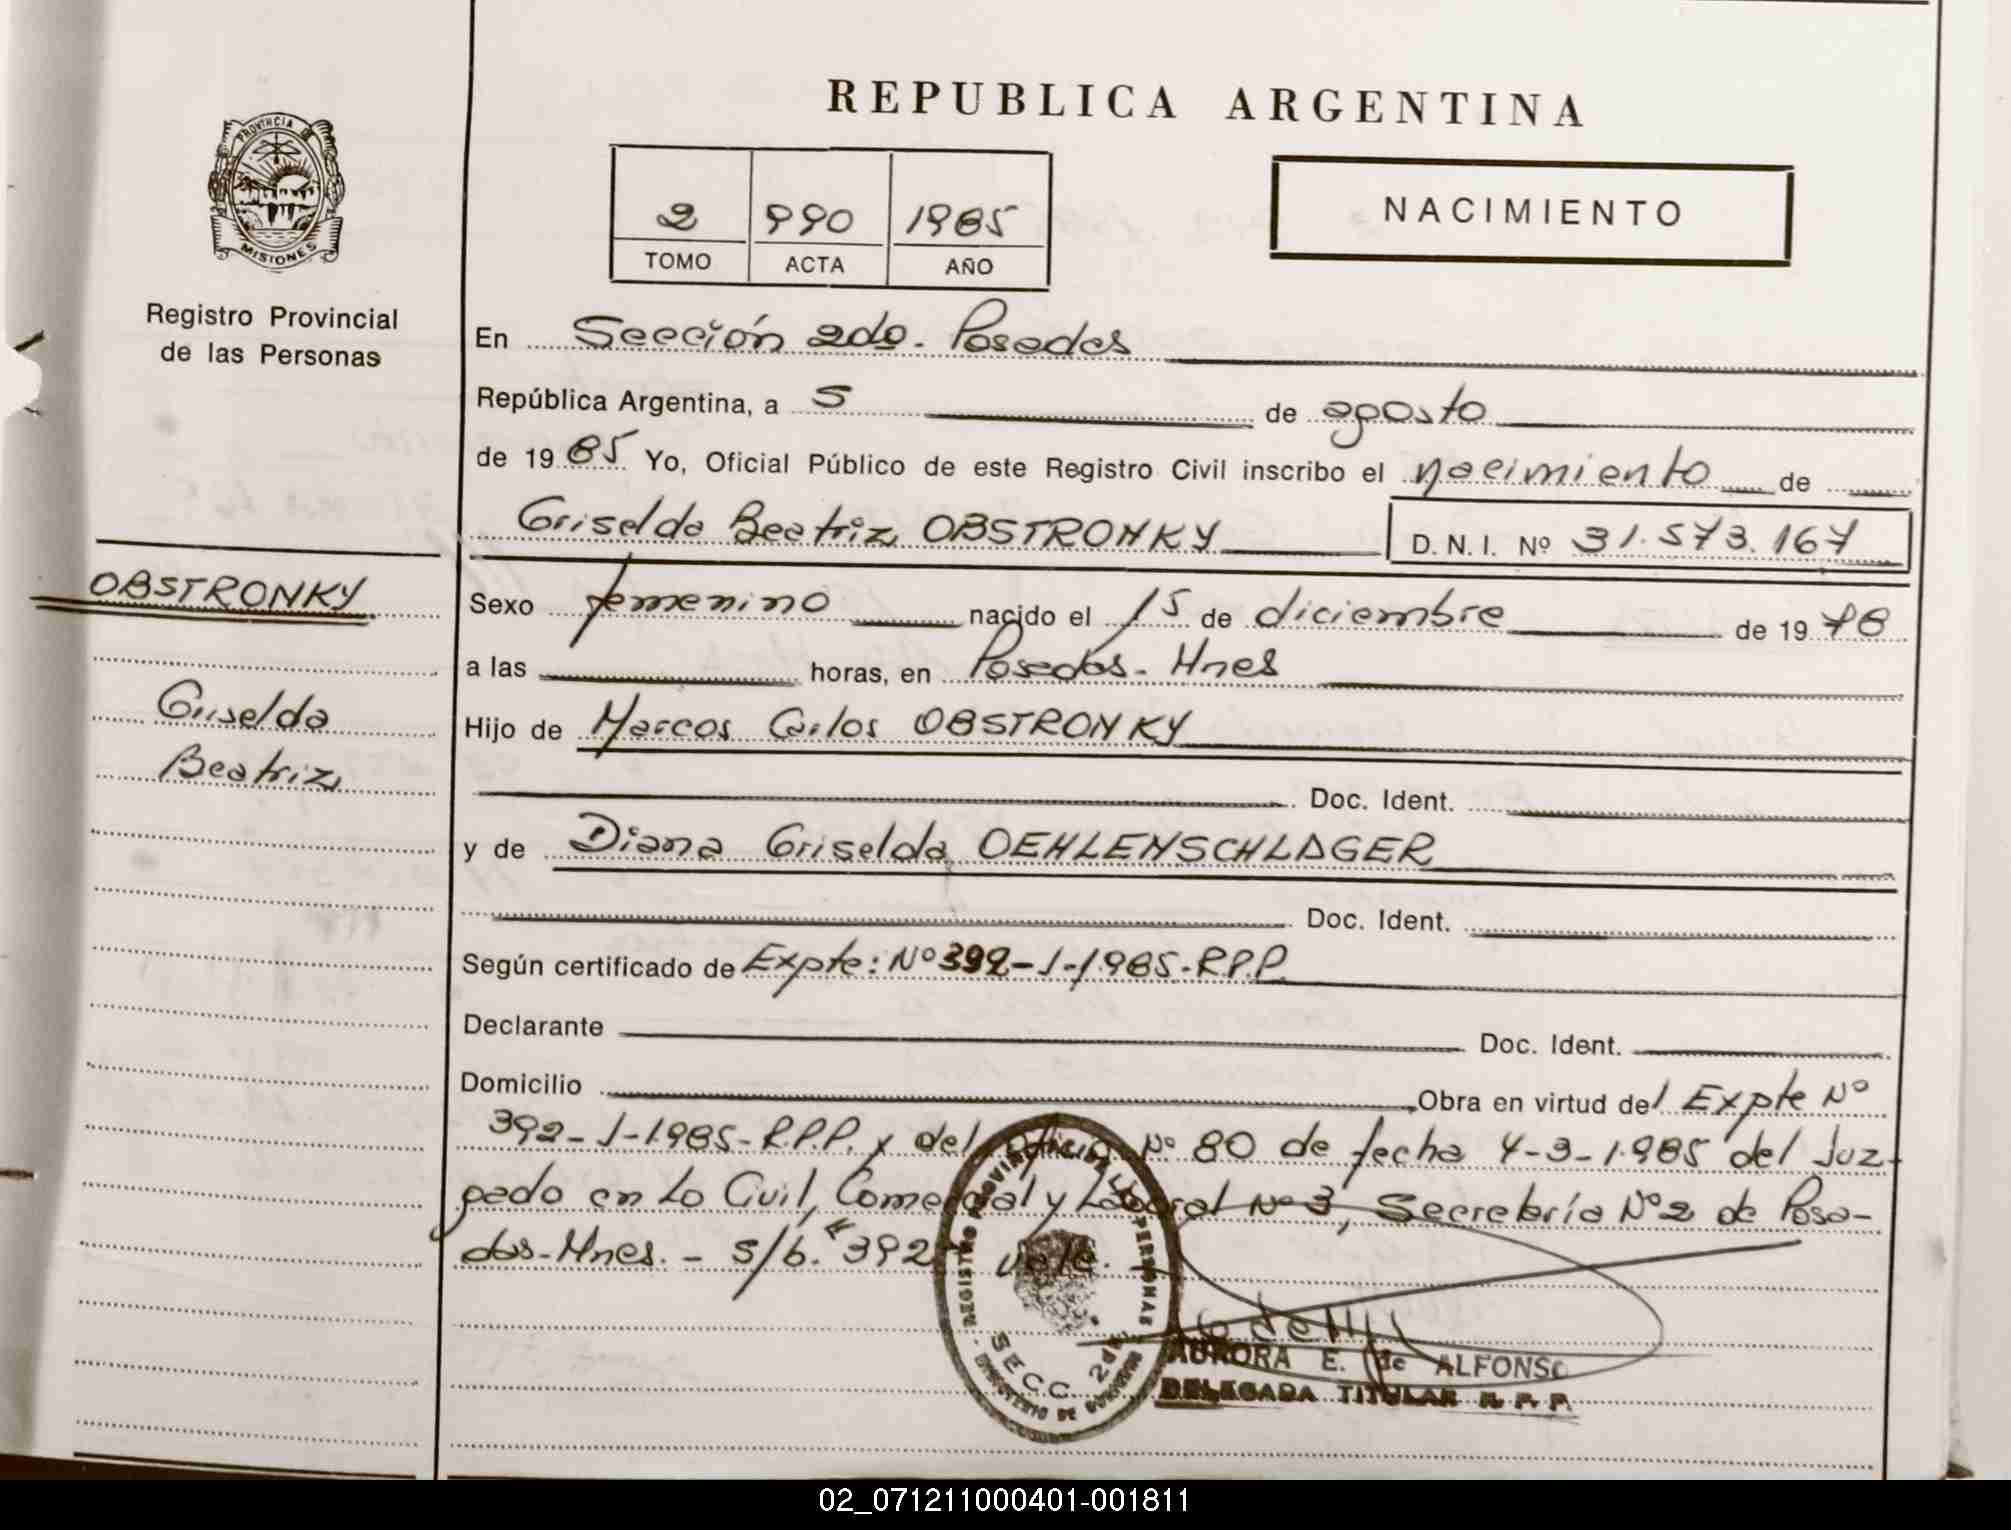 REPUBLICA ARGENTINA
PROVINCIA DE
MISIONES
Registro Provincial
de las Personas
2 990 1985
TOMO ACTA AÑO
NACIMIENTO
En Sección 2do. Posadas
República Argentina, a 5 de agosto
de 1985 Yo, Oficial Público de este Registro Civil inscribo el nacimiento de
Griselda Beatriz OBSTRONKY D. N. I. Nº 31.573.167
OBSTRONKY
Sexo femenino nacido el 15 de diciembre de 1978
a las horas, en Posadas - Mnes
Griselda
Hijo de Marcos Carlos OBSTRONKY
Beatriz
Doc. Ident.
y de Diana Griselda OEHLENSCHLAGER
Doc. Ident.
Según certificado de Expte: Nº 392-J-1.985-R.P.P.
Declarante Doc. Ident.
Domicilio Obra en virtud del Expte Nº
392-J-1.985-R.P.P. y del oficio Nº 80 de fecha 4-3-1.985 del Juz-
gado en Lo Civil, Comercial y Laboral Nº 3, Secretaría Nº 2 de Posa-
das-Mnes. - s/b. "392" vale.
REGISTRO PROVINCIAL DE LAS PERSONAS
SECC. 2da
MINISTERIO DE GOBIERNO
AURORA E. de ALFONSO
DELEGADA TITULAR R. P. P.
02_071211000401-001811